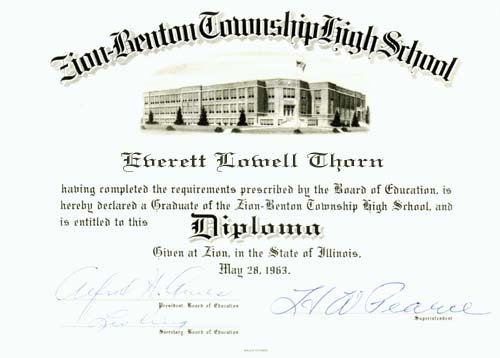 Zion-Benton Township High School
Everett Lowell Thorn
having completed the requirements prescribed by the Board of Education, is
hereby declared a Graduate of the Zion-Benton Township High School, and
is entitled to this Diploma
Given at Zion, in the State of Illinois,
May 28, 1963.
Alfred H.
President, Board of Education
H W Pearce
Superintendent
Secretary, Board of Education